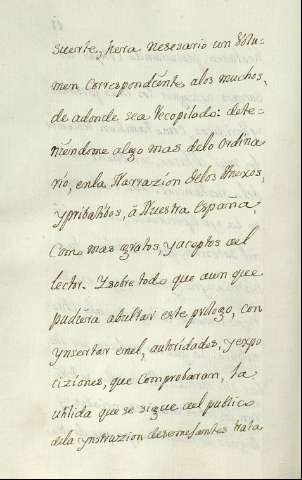 suerte, hera nesesario un Volu-
men Correspondiente a los muchos,
de adonde sea Recopilado: dete-
niendome algo mas delo ordina
rio, enla Narrazion delos
y pribatibos, â Nuestra España,
Como mas gratos, y aceptos ael
lector. Y sobre todo que aun que
pudiera abultar este prologo, con
ynsertar enel, autoridades, y expo
ciziones, que Comprobaran, la
utilida que se sigue ael publico
dela ynstruzzion desemejantes trata